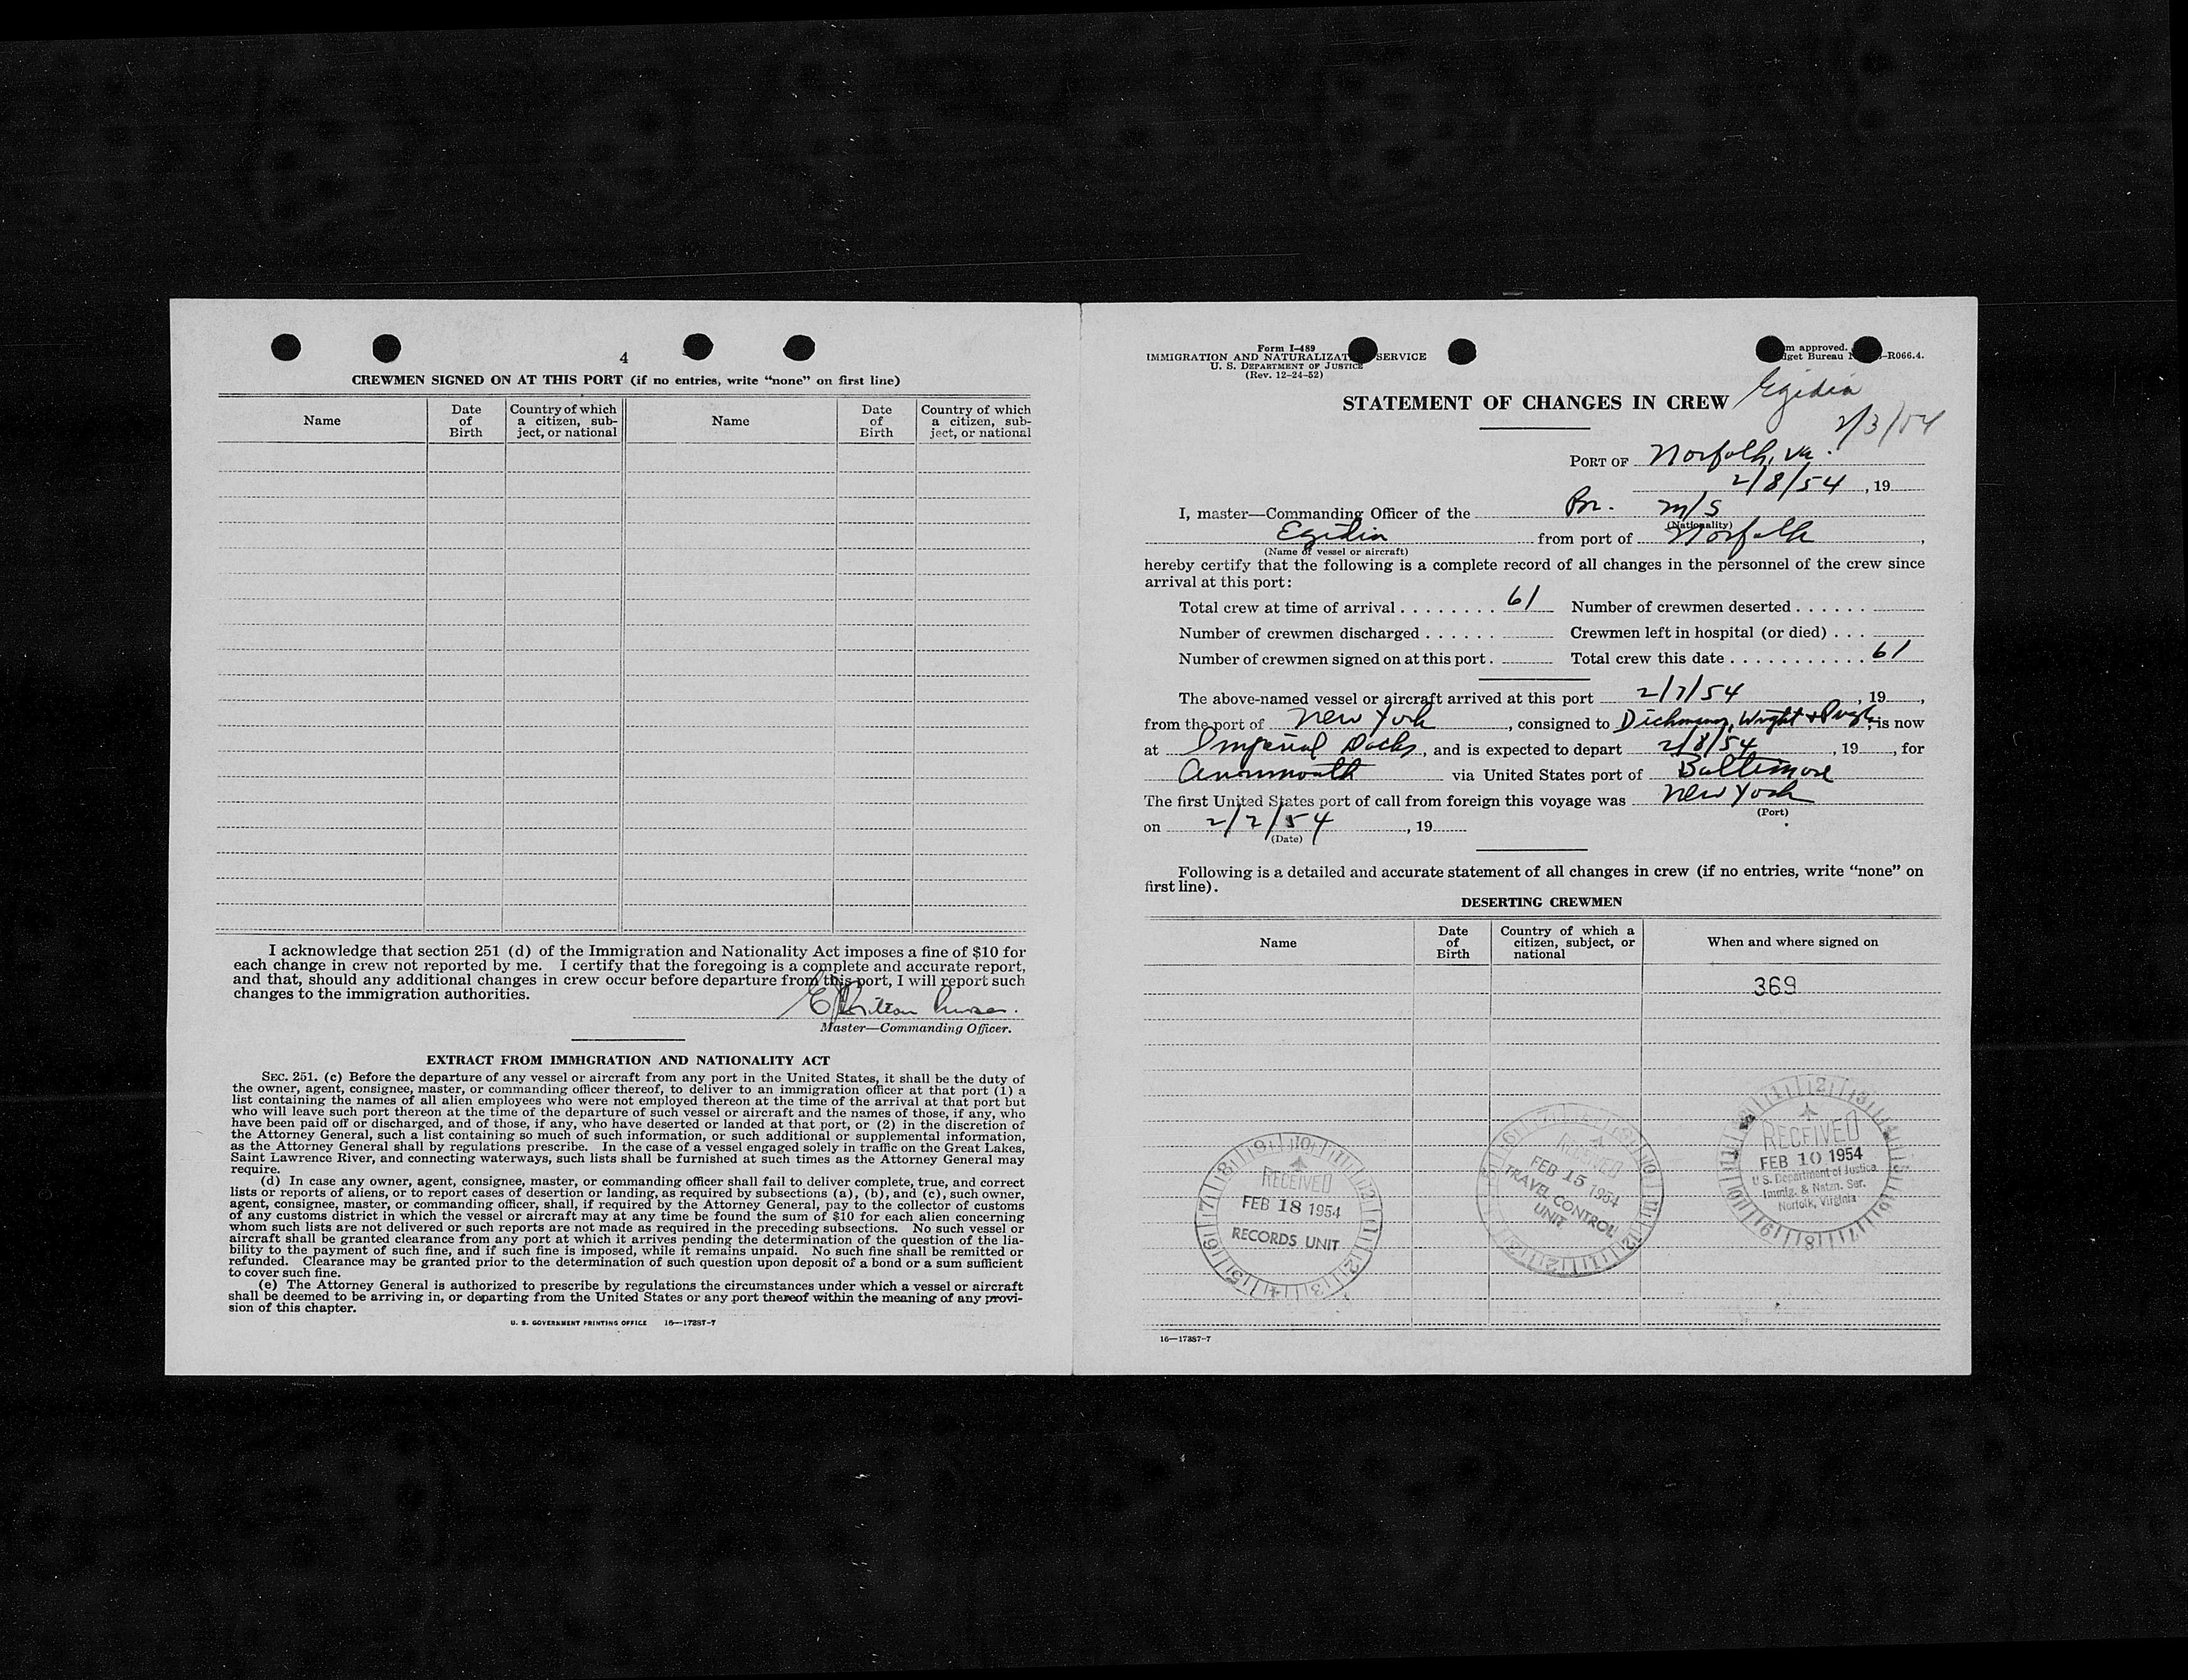 4
CREWMEN SIGNED ON AT THIS PORT (if no entries, write “none” on first line)
Name
Date of Birth
Country of which a citizen, sub-ject, or national
Name
Date of Birth
Country of which a citizen, sub-ject, or national
I acknowledge that section 251 (d) of the Immigration and Nationality Act imposes a fine of $10 for
each change in crew not reported by me. I certify that the foregoing is a complete and accurate report,
and that, should any additional changes in crew occur before departure from this port, I will report such
changes to the immigration authorities.
Master—Commanding Officer.
EXTRACT FROM IMMIGRATION AND NATIONALITY ACT
SEC. 251. (c) Before the departure of any vessel or aircraft from any port in the United States, it shall be the duty of
the owner, agent, consignee, master, or commanding officer thereof, to deliver to an immigration officer at that port (1) a
list containing the names of all alien employees who were not employed thereon at the time of the arrival at that port but
who will leave such port thereon at the time of the departure of such vessel or aircraft and the names of those, if any, who
have been paid off or discharged, and of those, if any, who have deserted or landed at that port, or (2) in the discretion of
the Attorney General, such a list containing so much of such information, or such additional or supplemental information,
as the Attorney General shall by regulations prescribe. In the case of a vessel engaged solely in traffic on the Great Lakes,
Saint Lawrence River, and connecting waterways, such lists shall be furnished at such times as the Attorney General may
require.
(d) In case any owner, agent, consignee, master, or commanding officer shall fail to deliver complete, true, and correct
lists or reports of aliens, or to report cases of desertion or landing, as required by subsections (a), (b), and (c), such owner,
agent, consignee, master, or commanding officer, shall, if required by the Attorney General, pay to the collector of customs
of any customs district in which the vessel or aircraft may at any time be found the sum of $10 for each alien concerning
whom such lists are not delivered or such reports are not made as required in the preceding subsections. No such vessel or
aircraft shall be granted clearance from any port at which it arrives pending the determination of the question of the lia-
bility to the payment of such fine, and if such fine is imposed, while it remains unpaid. No such fine shall be remitted or
refunded. Clearance may be granted prior to the determination of such question upon deposit of a bond or a sum sufficient
to cover such fine.
(e) The Attorney General is authorized to prescribe by regulations the circumstances under which a vessel or aircraft
shall be deemed to be arriving in, or departing from the United States or any port thereof within the meaning of any provi-
sion of this chapter.
U. S. GOVERNMENT PRINTING OFFICE 16—17387-7
Form I-489
IMMIGRATION AND NATURALIZAT SERVICE
U. S. DEPARTMENT OF JUSTICE
(Rev. 12-24-52)
m approved.
dget Bureau -R066.4.
Egidia
2/3/54
STATEMENT OF CHANGES IN CREW
PORT OF Norfolk, Va.
2/8/54, 19
I, master—Commanding Officer of the Br. M/S
(Nationality)
Egidia from port of Norfolk,
(Name of vessel or aircraft)
hereby certify that the following is a complete record of all changes in the personnel of the crew since
arrival at this port:
Total crew at time of arrival . . . . . . . . 61 Number of crewmen deserted . . . . . .
Number of crewmen discharged . . . . . . Crewmen left in hospital (or died) . . .
Number of crewmen signed on at this port . Total crew this date . . . . . . . . . . . 61
The above-named vessel or aircraft arrived at this port 2/7/54, 19,
from the port of New York, consigned to Dichmann, Wright & Pugh, is now
at Imperial Docks, and is expected to depart 2/8/54, 19, for
Avonmouth via United States port of Baltimore
The first United States port of call from foreign this voyage was New York
(Port)
on 2/2/54, 19
(Date)
Following is a detailed and accurate statement of all changes in crew (if no entries, write “none” on
first line).
DESERTING CREWMEN
Name
Date of Birth
Country of which a citizen, subject, or national
When and where signed on
369
RECEIVED
FEB 18 1954
RECORDS UNIT
RECEIVED
FEB 15 1954
TRAVEL CONTROL
UNIT
RECEIVED
FEB 10 1954
U S. Department of Justice
Immig. & Natzn. Ser.
Norfolk, Virginia
16—17387-7